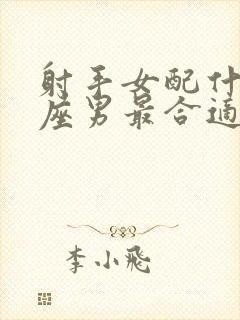 射手女配什
座男最合适
李小飛